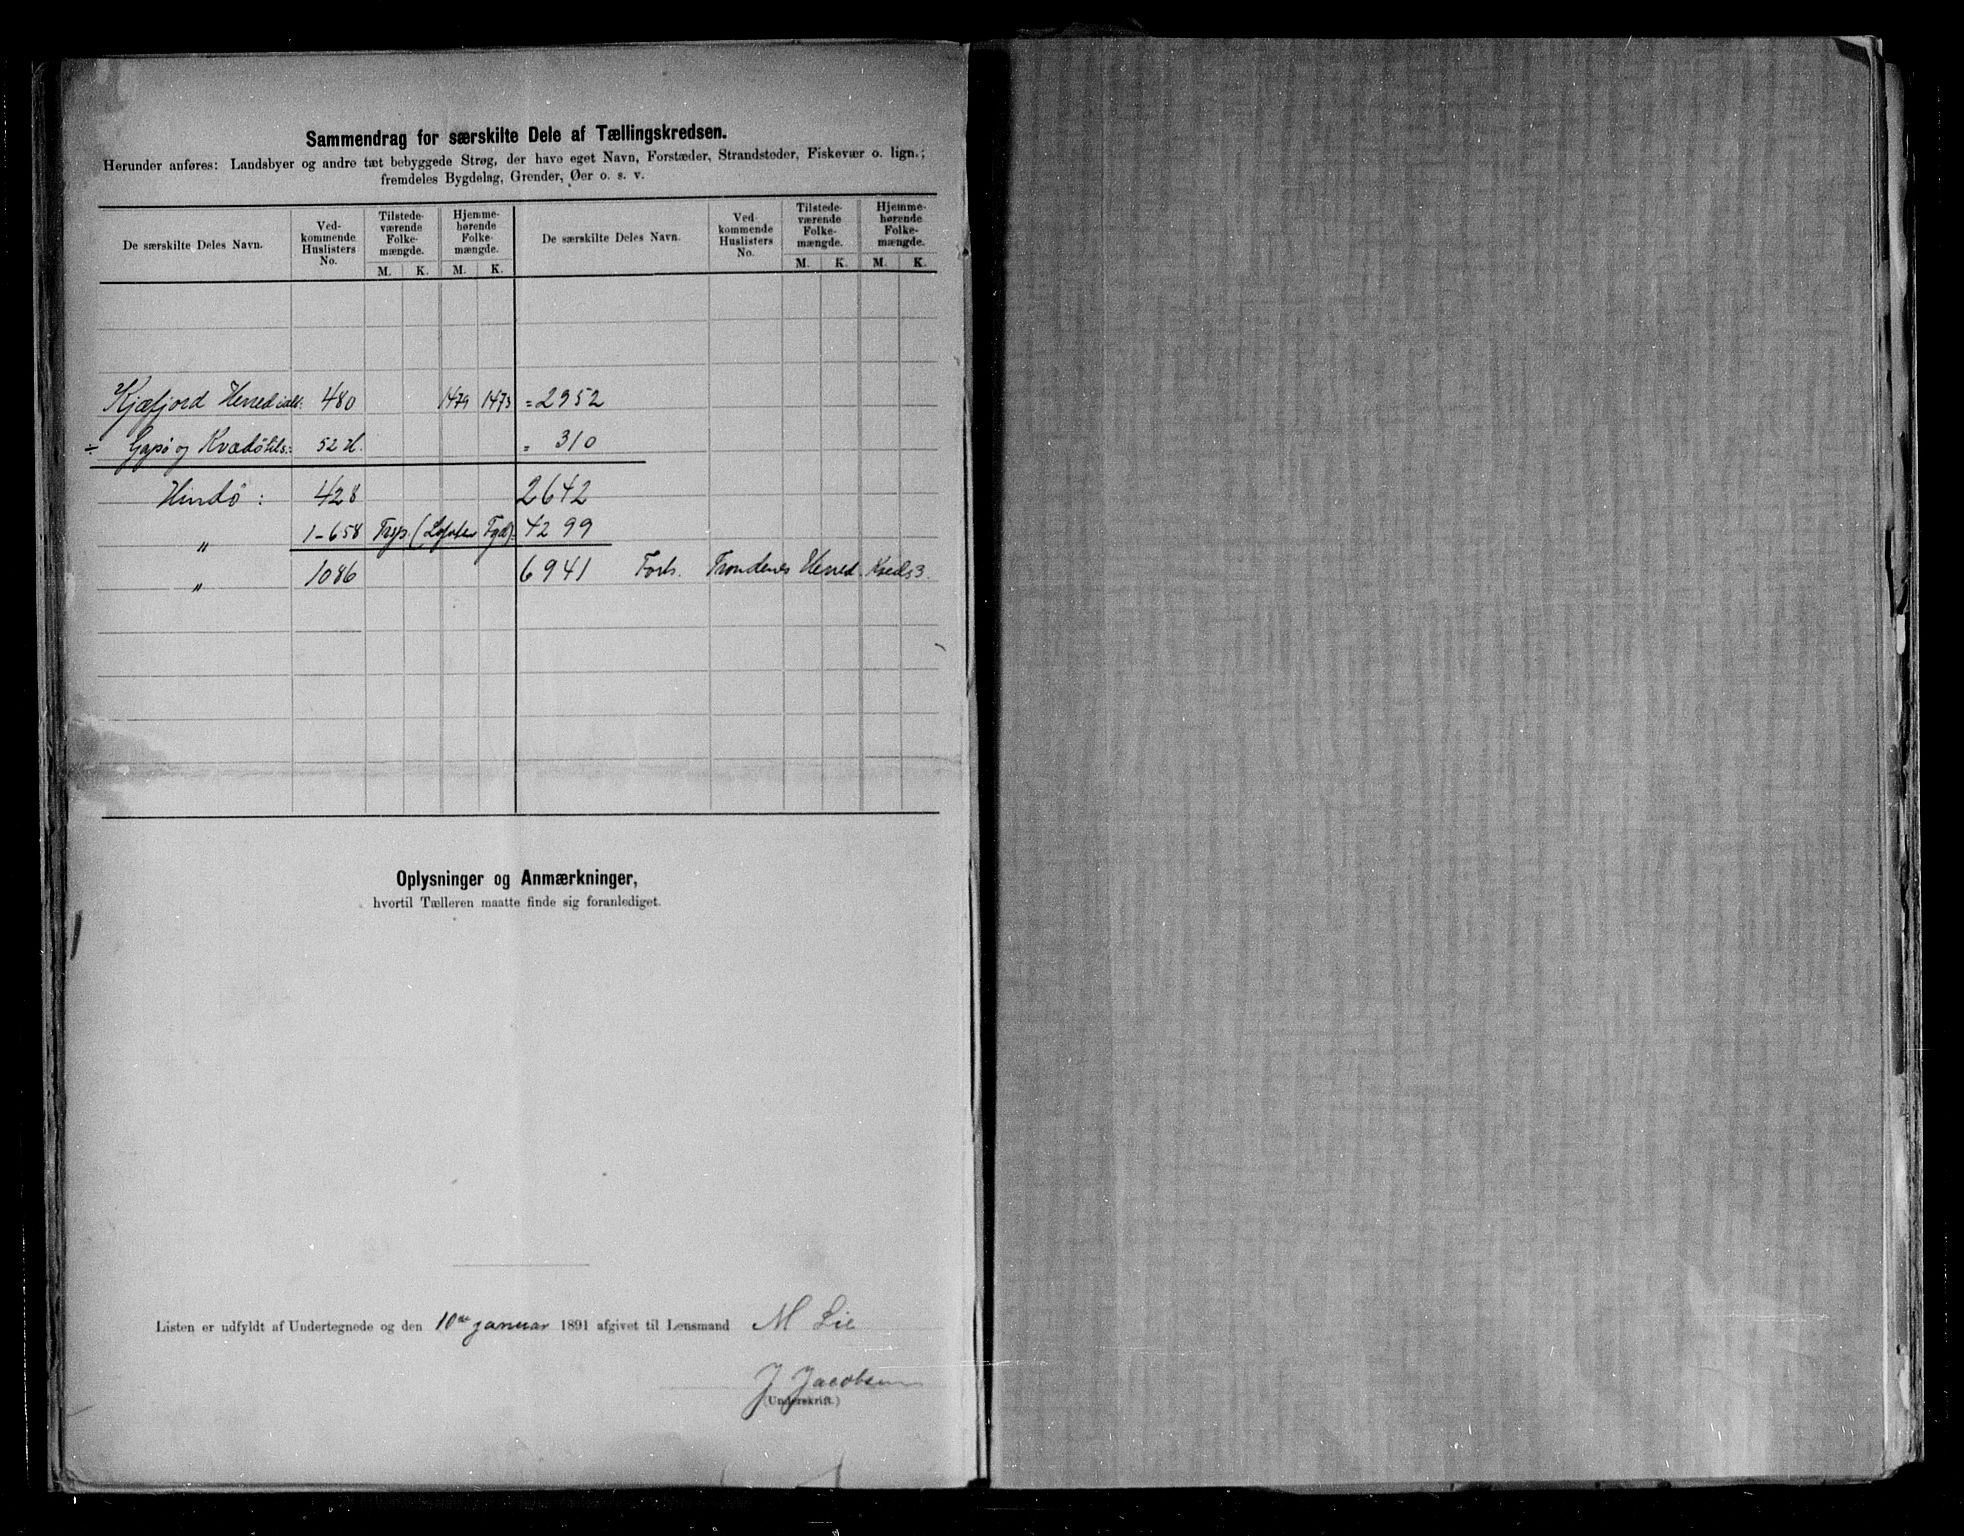 Sammendrag for særskilte Dele af Tællingskredsen.
Herunder anføres: Landsbyer og andre tæt bebyggede Strøg, der have eget Navn, Forstæder, Strandsteder, Fiskevær o. lign.;
fremdeles Bygdelag, Grender, Øer o. s. v.
De særskilte Deles Navn. Ved-kommende Huslisters No. Tilstede-værende Folke-mængde. Hjemme-hørende Folke-mængde. De særskilte Deles Navn. Ved-kommende Huslisters No. Tilstede-værende Folke-mængde. Hjemme-hørende Folke-mængde.
M. K. M. K. M. K. M. K.
Kjæfjord Herred ialt: 480 1479 1473 = 2952
÷ Gapsø og Kvædø tils.: 52 H. = 310
Hindø : 428 2642
" 1-658 Trys. (Lofoten Fgd): 4299
" 1086 6941 Forts. Trondenes Herred. Kreds 3.
Oplysninger og Anmærkninger,
hvortil Tælleren maatte finde sig foranlediget.
Listen er udfyldt af Undertegnede og den 10de januar 1891 afgivet til Lensmand M Lie
J Jacobsen
(Underskrift.)